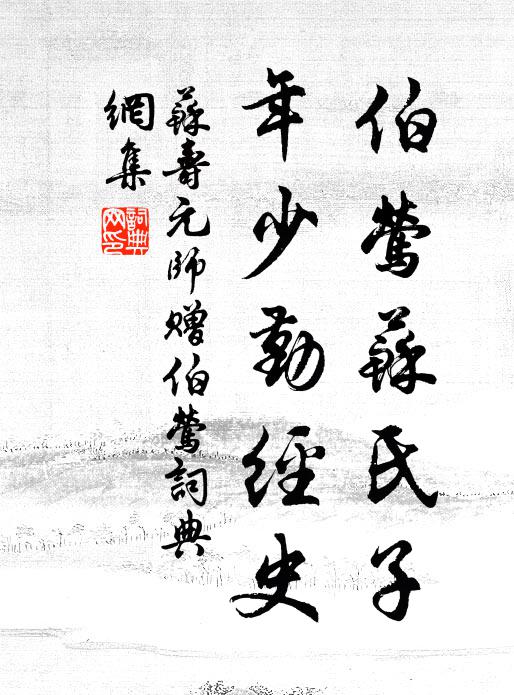 伯鶯蘇氏子
年少勤經史
蘇壽元師贈伯鶯詞典
網集
詞典網印